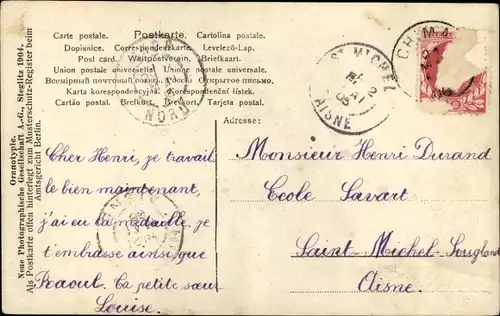 Carte postale. Postkarte. Cartolina postale.
Dopisnice. Correspondenzkarte. Levelező-Lap.
Post card. Weltpostverein. Briefkaart.
Union postale universelle. Unione postale universale.
Всемірный почтовый союзъ. Россія. Открытое письмо.
Karta korespondencyjna. Korespondenční lístek.
Cartão postal. Brefkort. Brevkort. Tarjeta postal.
NORD
ST MICHEL
2
MAI
05
AISNE
CHIMA
Oranotypie.
Neue Photographische Gesellschaft A.-G., Steglitz 1904.
Als Postkarte offen hinterlegt zum Musterschutz-Register beim
Amtsgericht Berlin.
Adresse:
Cher Henri, je travail
le bien maintenant,
j'ai eu la médaille, je
t'embrasse ainsi que
Raoul. Ta petite sœur
Louise.
Monsieur Henri Durand
Ecole Savart
Saint-Michel-Sougland
Aisne.